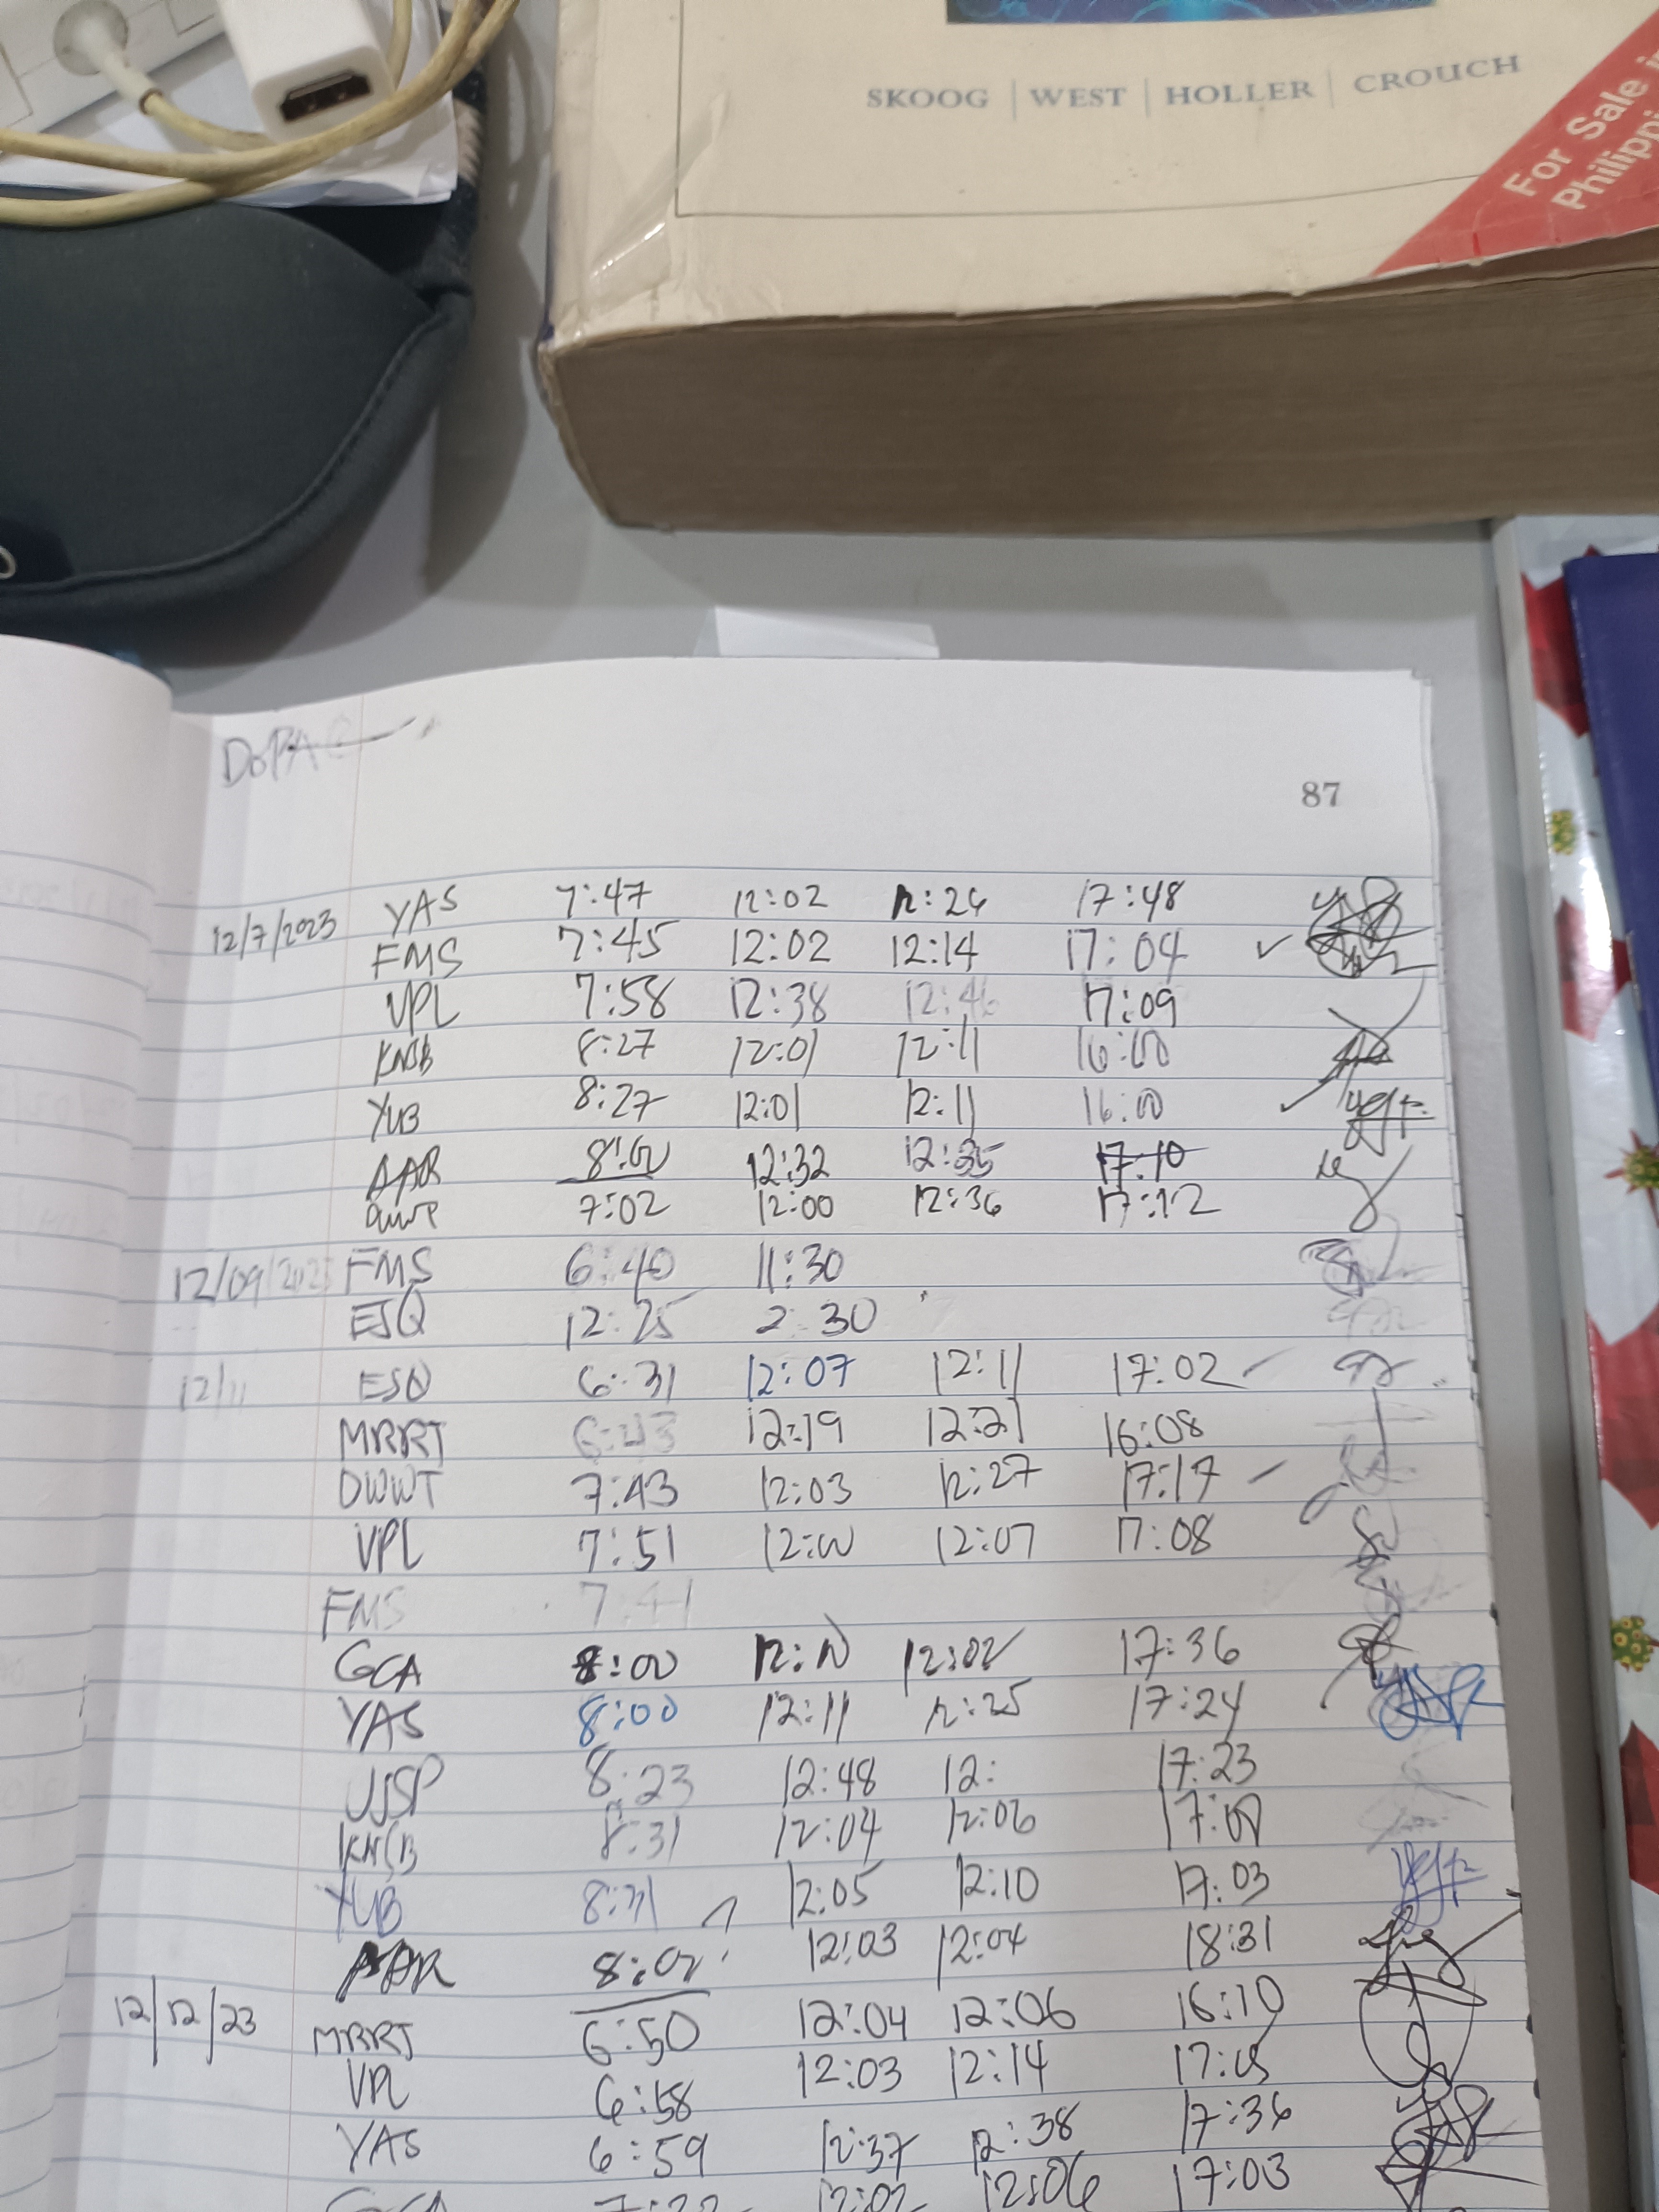 SKOOG | WEST | HOLLER | CROUCH
For Sale i
Philippi
87
12/7/2023 YAS 7:47 12:02 12:26 17:48
FMS 7:45 12:02 12:14 17:04 ✓
VPL 7:58 12:38 12:46 17:09
KNSB 8:27 12:01 12:11 16:00
YUB 8:27 12:01 12:11 16:00 ✓
AAR 8:00 12:32 12:35 17:10
DWWT 7:02 12:00 12:36 17:12
12/09/2023 FMS 6:40 11:30
ESQ 12:25 2:30
12/11 ESQ 6:31 12:07 12:11 17:02
MRRT 6:43 12:19 12:21 16:08
DWWT 7:43 12:03 12:27 17:17
VPL 7:51 12:00 12:07 17:08
FMS 7:41
GCA 8:00 12:10 12:02 17:36
YAS 8:00 12:11 12:25 17:24
UJSP 8:23 12:48 12: 17:23
KNSB 8:31 12:04 12:06
YUB 8:31 12:05 12:10 17:03
AAR 12:03 12:04 18:31
12/12/23 MRRT 6:50 12:04 12:06 16:10
VPL 6:58 12:03 12:14
YAS 6:59 12:37 12:38 17:36
GCA 12:02 12:06 17:03